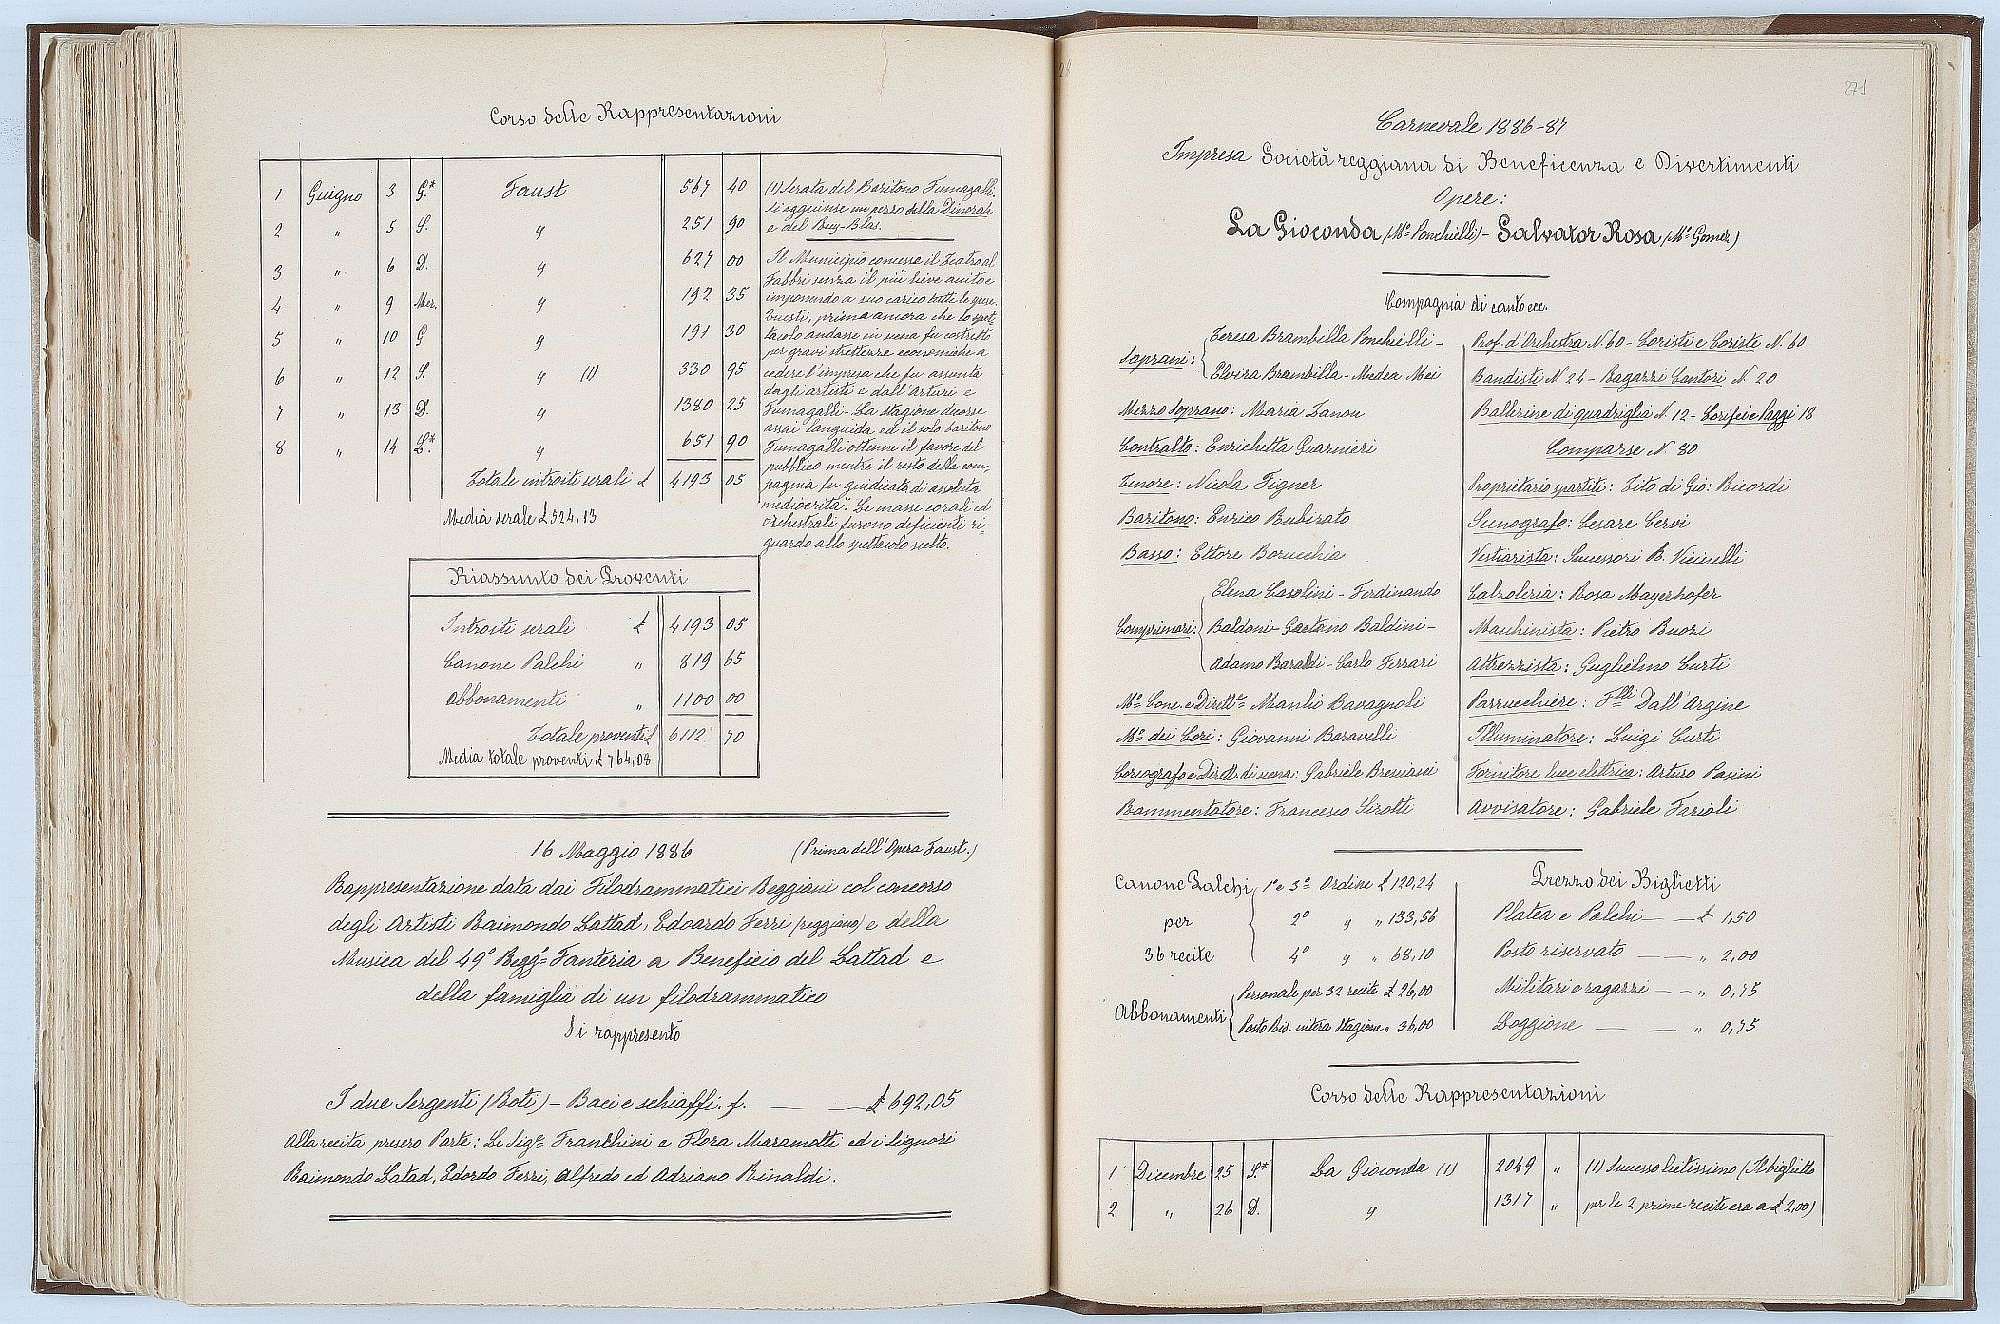 Corso delle Rappresentazioni
1 Giugno 3 G.* Faust 567 40
2 " 5 S. " 251 90
3 " 6 D. " 627 00
4 " 9 Mer. " 192 35
5 " 10 G " 191 30
6 " 12 S. " (1) 330 95
7 " 13 D. " 1380 25
8 " 14 L.* " 651 90
Totale introiti serali £ 4193 05
Media serale £ 524,13
(1) Serata del Baritono Fumagalli.
Si aggiunse un pezzo della Dinorah
e del Ruy-Blas.
Il Municipio concesse il Teatro al
Fabbri senza il più lieve aiuto e
imponendo a suo carico tutte le spese.
Questi, prima ancora che lo spet-
tacolo andasse in scena fu costretto
per gravi strettezze economiche a
cedere l'impresa che fu assunta
dagli artisti e dall'Arturi e
Fumagalli - La stagione decorse
assai languida ed il solo baritono
Fumagalli ottenne il favore del
pubblico mentre il resto della com-
pagnia fu giudicata di assoluta
mediocrità. Le masse corali ed
orchestrali furono deficienti ri-
guardo allo spettacolo scelto.
Riassunto dei Proventi
Introiti serali £ 4193 05
Canone Palchi " 819 65
Abbonamenti " 1100 00
Totale proventi £ 6112 70
Media totale proventi £ 764,08
16 Maggio 1886 (Prima dell'Opera Faust.)
Rappresentazione data dai Filodrammatici Reggiani col concorso
degli Artisti Raimondo Lattad, Edoardo Ferri (reggiano) e della
Musica del 49° Regg.to Fanteria a Beneficio del Lattad e
della famiglia di un filodrammatico
Si rappresentò
I due Sergenti (Roti) - Baci e schiaffi. f. — — £ 692,05
Alla recita presero Parte: Le Sig.re Franchini e Flora Maramotti ed i signori
Raimondo Latad, Edordo Ferri, Alfredo ed Adriano Rinaldi.
271
Carnevale 1886-87
Impresa Società reggiana di Beneficenza e Divertimenti
Opere:
La Gioconda (M° Ponchielli) - Salvator Rosa (M° Gomez)
Compagnia di canto ecc.
Soprani: Teresa Brambilla Ponchielli -
Elvira Brambilla - Medea Mei
Mezzo Soprano: Maria Zanon
Contralto: Enrichetta Guarnieri
Tenore: Nicola Figner
Baritono: Enrico Bubirato
Basso: Ettore Borucchia
Comprimari: Elena Casolini - Ferdinando
Baldoni - Gaetano Baldini -
Adamo Baraldi - Carlo Ferrari
M° Conc. e Dirett.e Manlio Bavagnoli
M° dei Cori: Giovanni Baravelli
Coreografo e Dirett. di scena: Gabriele Bresciani
Rammentatore: Francesco Sirotti
Prof. d'Orchestra N. 60 - Coristi e Coriste N. 60
Bandisti N 24 - Ragazzi Cantori N. 20
Ballerine di quadriglia N. 12 - Corifei e Paggi 18
Comparse N. 80
Proprietario spartiti: Tito di Gio: Ricordi
Scenografo: Cesare Cervi
Vestiarista: Successori B. Vicinelli
Calzoleria: Rosa Mayerhofer
Macchinista: Pietro Buozi
Attrezzista: Guglielmo Curti
Parrucchiere: F.lli Dall'Argine
Illuminatore: Luigi Curti
Fornitore luce elettrica: Arturo Pasini
Avvisatore: Gabriele Farioli
Canone Palchi 1° e 3° Ordine £ 120,24
per 2° " " 133,56
36 recite 4° " " 68,10
Abbonamenti Personale per 32 recite £ 26,00
Posto Ris. intera stagione " 36,00
Prezzo dei Biglietti
Platea e Palchi — £ 1,50
Posto riservato — " 2,00
Militari e ragazzi — " 0,75
Loggione — " 0,75
Corso delle Rappresentazioni
1 Dicembre 25 S.* La Gioconda (1) 2049 " (1) Successo lietissimo (Il biglietto
2 " 26 D. " 1317 " per le 2 prime recite era a £ 2,00)